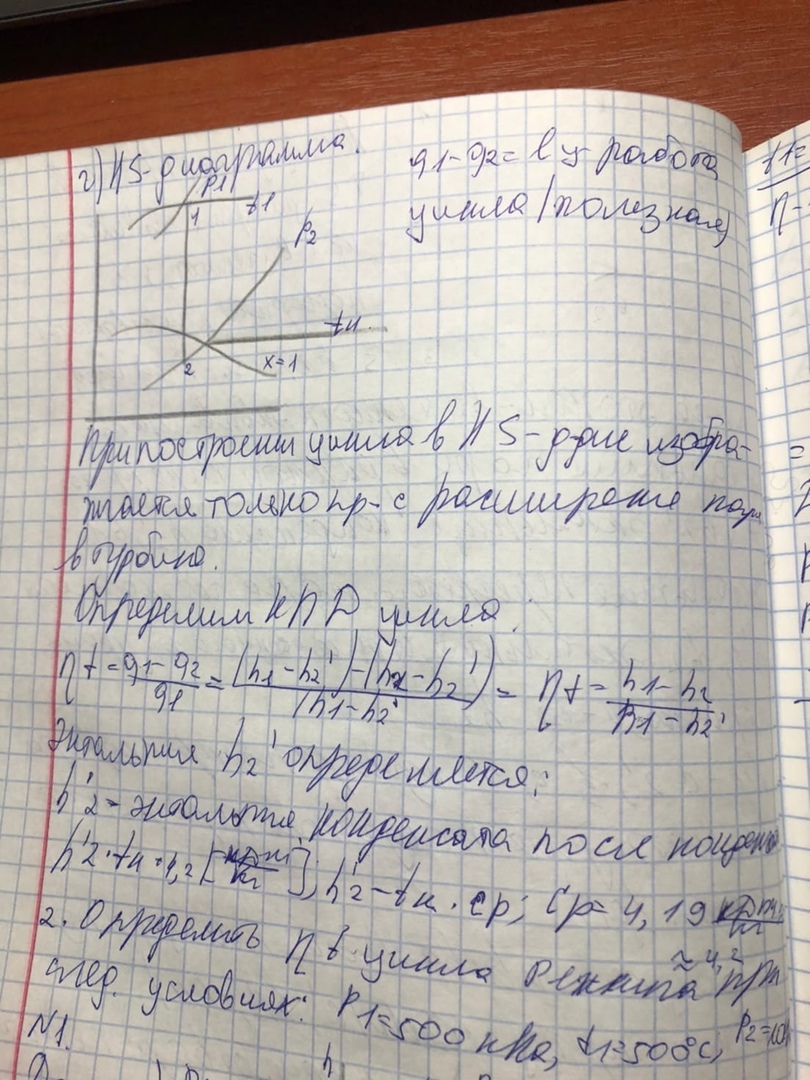 г) HS-диаграмма.
q1-q2=lц-работа
цикла (полезная)
P1
t1
1
P2
tн
x=1
2
При построении цикла в HS-д-ме изобра-
жается только пр-с расширение пара
в турбине.
Определим КПД цикла:
ηt = (q1-q2)/q1 = ((h1-h2')-(h2-h2'))/(h1-h2') = ηt = (h1-h2)/(h1-h2')
Энтальпия h2' определяется:
h'2-энтальпия конденсата после
h'2=tн·4,2 [кДж/кг]; h'2-tн·cp; Cp=4,19
≈4,2
2. Определить ηt цикла Ренкина при
след. условиях: P1=500 кПа, t1=500°C, P2=10
N1.
t1=
η=